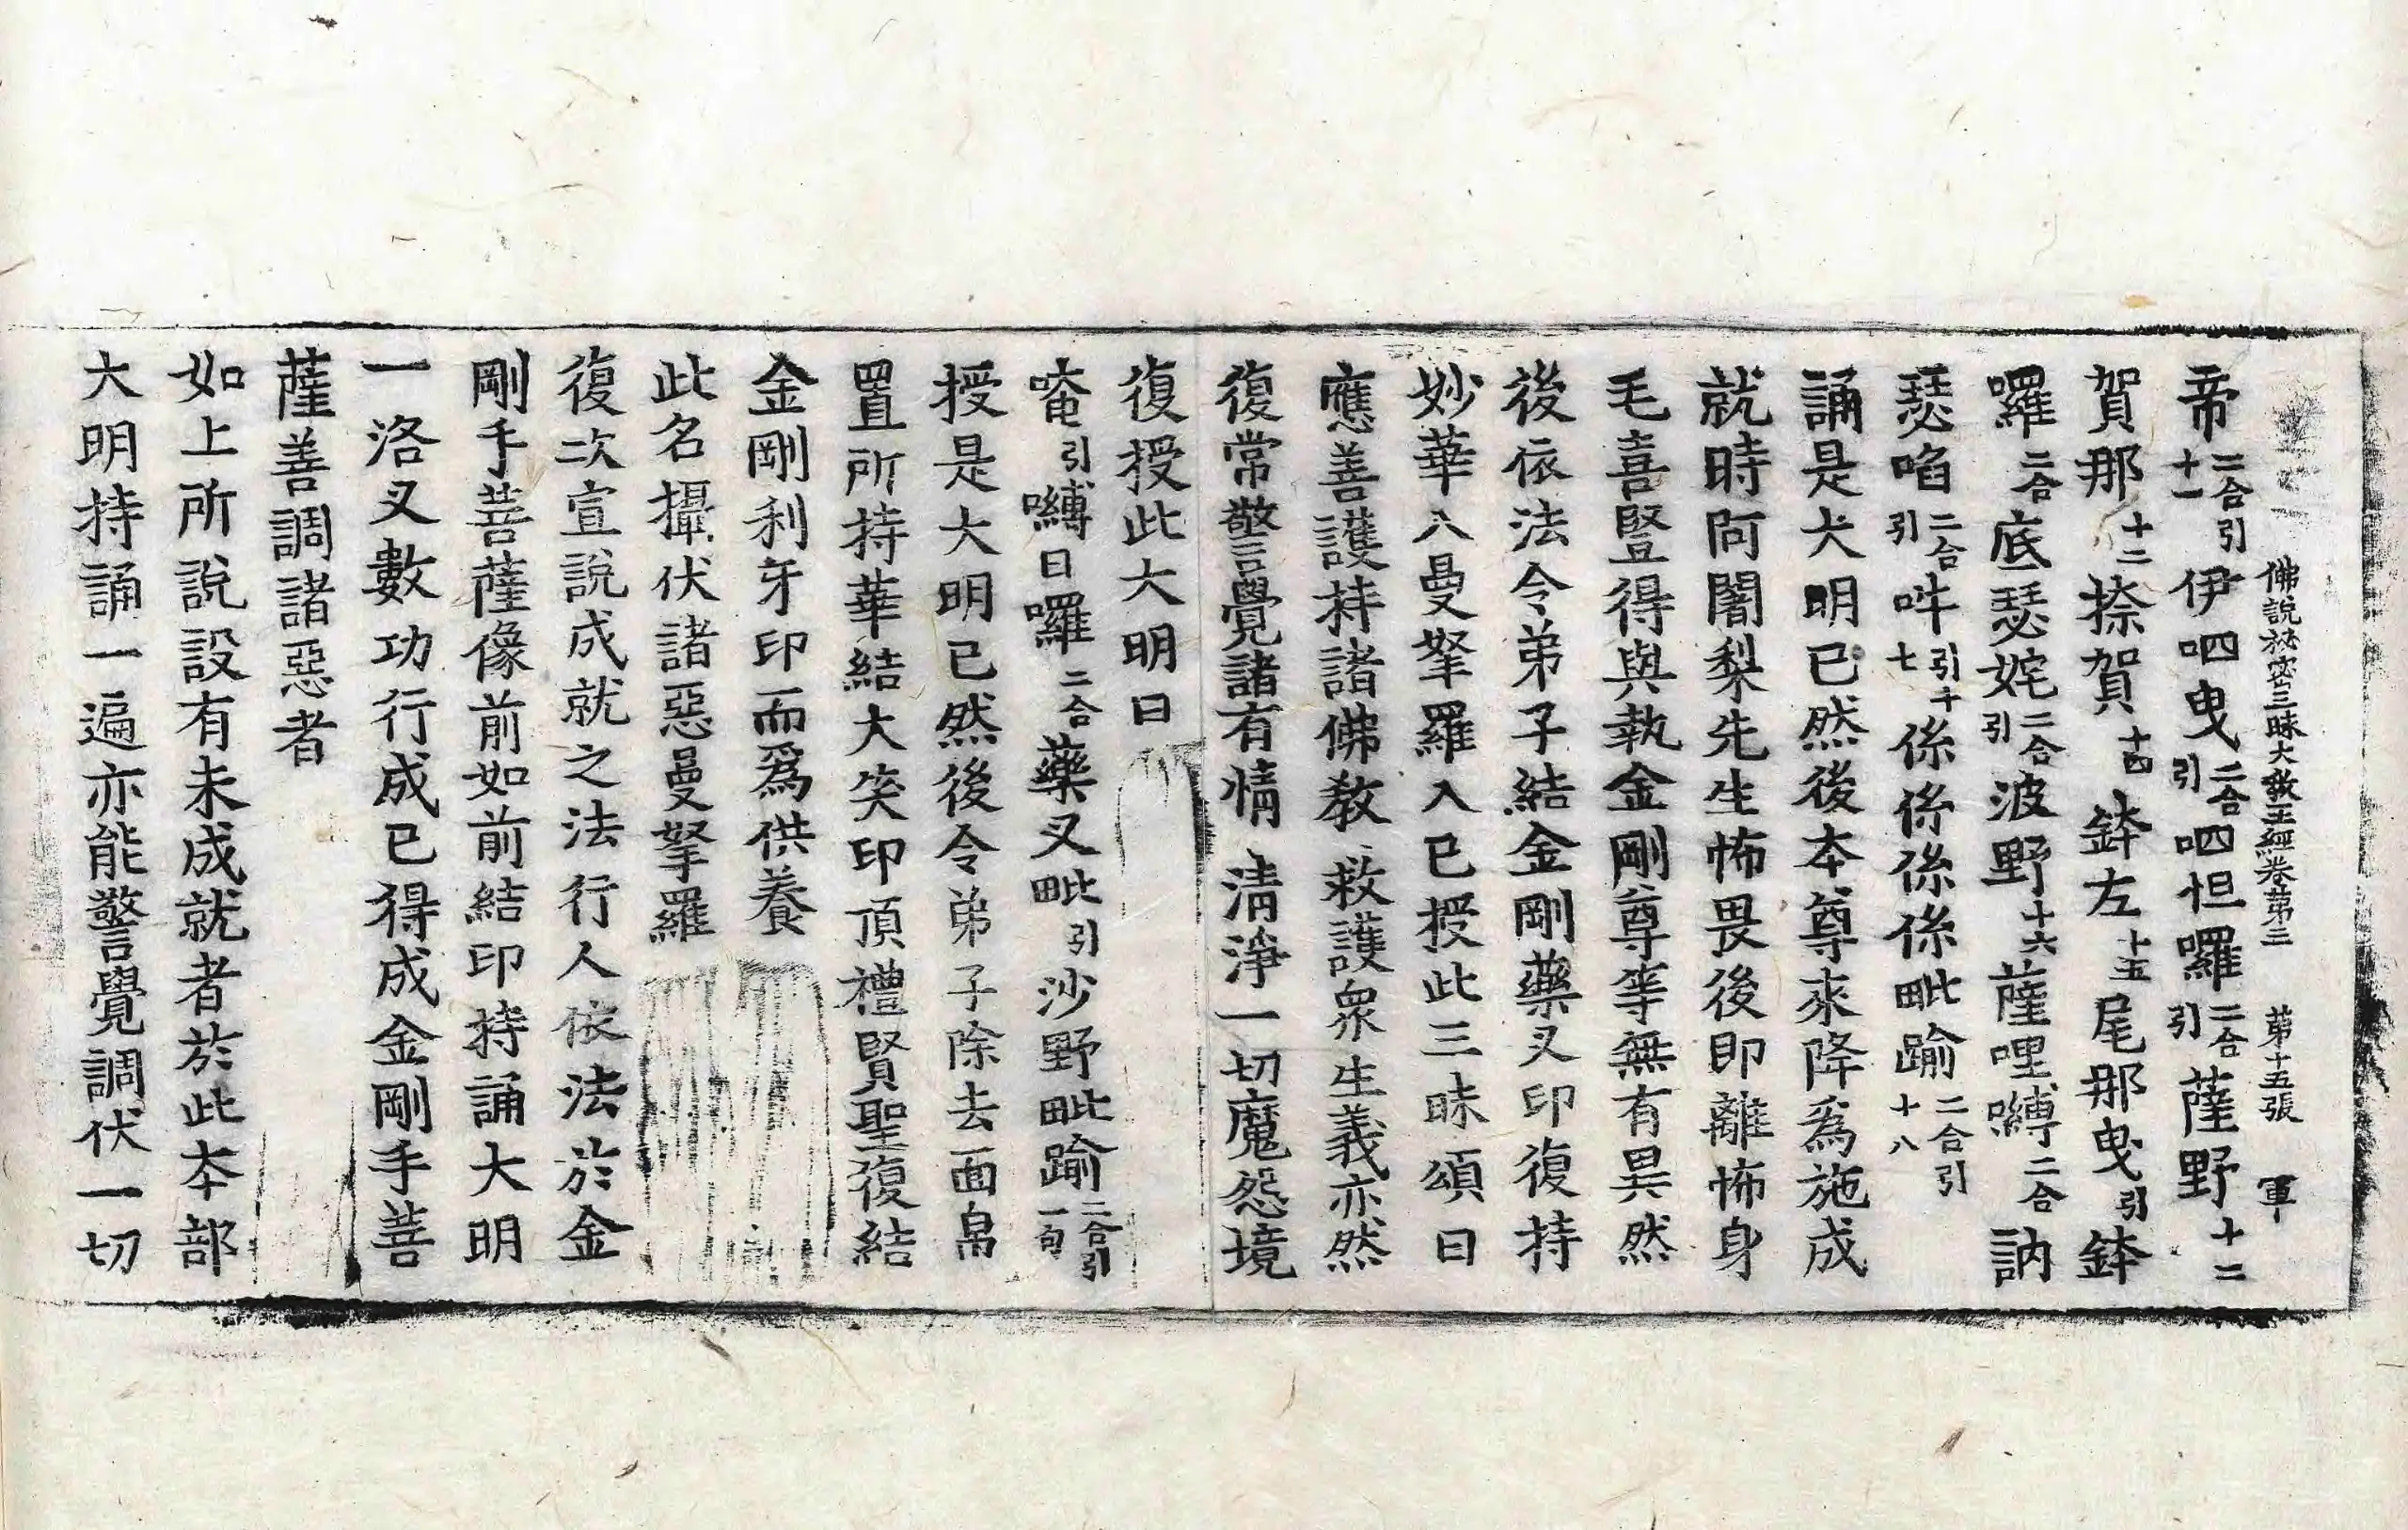 佛說秘密三昧大敎王經卷第三 第十五張 軍
帝二合引十一伊呬曳二合引呬怛囉二合引薩野十二
賀那十二捺賀十四鉢左十五尾那曳引鉢
囉二合底瑟姹二合引波野十六薩哩嚩二合訥
瑟㗖二合引吽引十七係係係係毗踰二合引十八
誦是大明已然後本尊來降爲施成
就時阿闍梨先生怖畏後即離怖身
毛喜豎得與執金剛尊等無有異然
後依法令弟子結金剛藥叉印復持
妙華入曼拏羅入已授此三昧頌曰
應善護持諸佛敎 救護衆生義亦然
復常警覺諸有情 淸淨一切魔怨境
復授此大明曰
唵引嚩日囉二合藥叉毗引沙野毗踰二合引一句
授是大明已然後令弟子除去面帛
置所持華結大笑印頂禮賢聖復結
金剛利牙印而爲供養
此名攝伏諸惡曼拏羅
復次宣說成就之法行人依法於金
剛手菩薩像前如前結印持誦大明
一洛叉數功行成已得成金剛手菩
薩善調諸惡者
如上所說設有未成就者於此本部
大明持誦一遍亦能警覺調伏一切